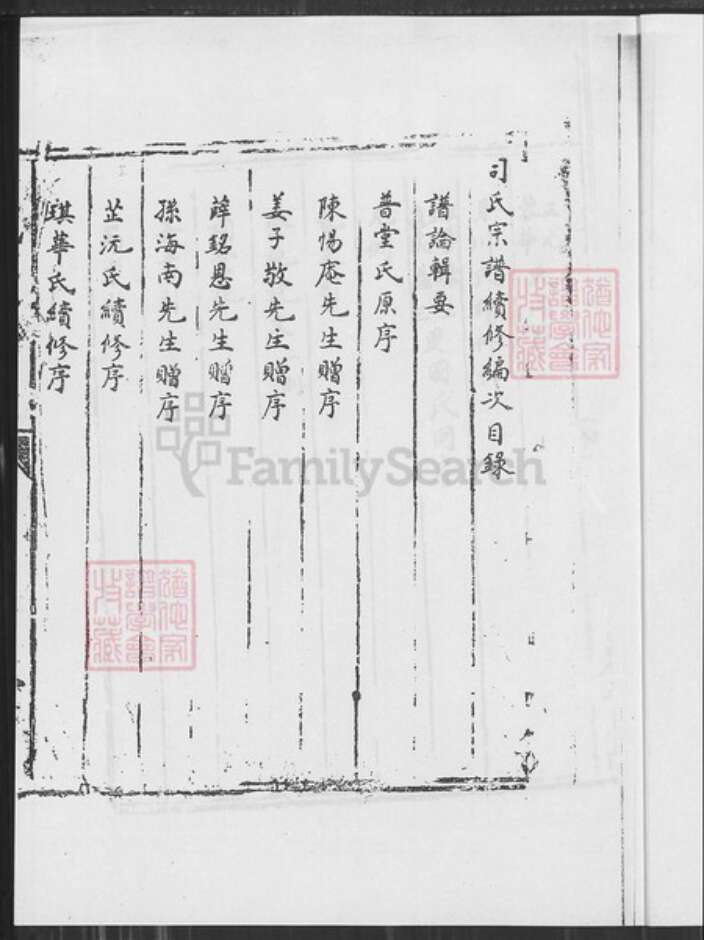 司氏宗譜續修編次目錄
譜論輯要
普堂氏原序
陳惕庵先生贈序
姜子敬先生贈序
薛銘恩先生贈序
孫海南先生贈序
芷沅氏續修序
琪華氏續修序
FamilySearch